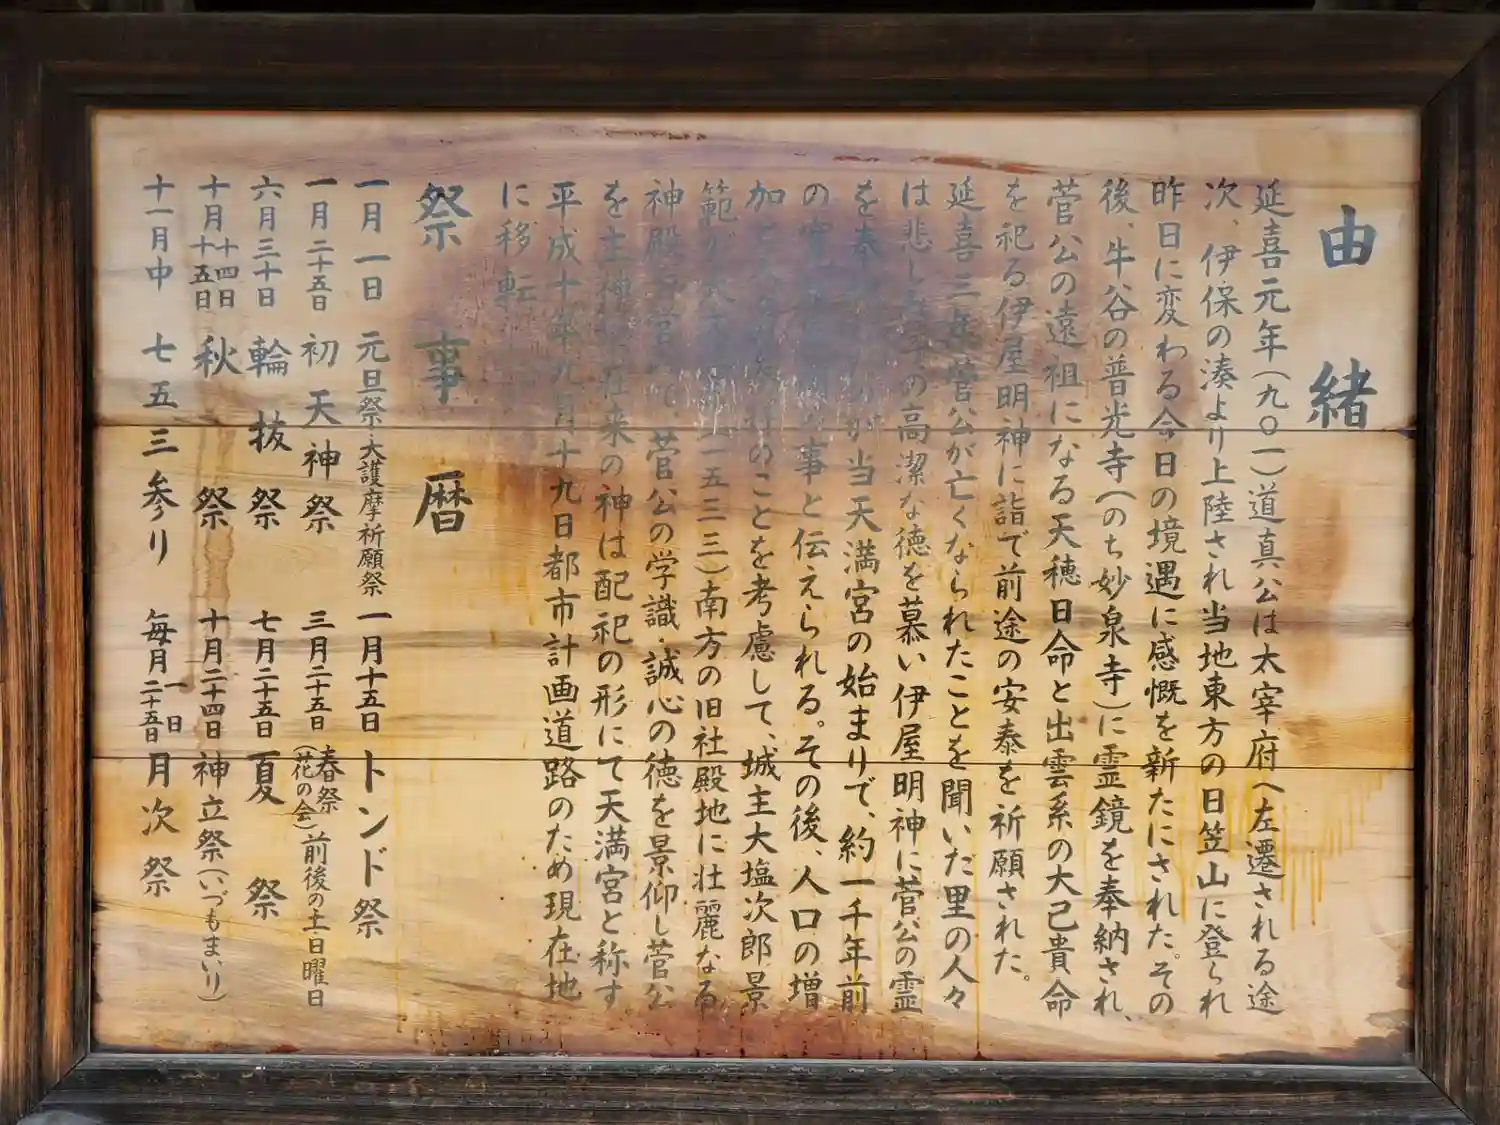 由緒
延喜元年(九〇一)道真公は太宰府へ左遷される途
次、伊保の湊より上陸され当地東方の日笠山に登られ
昨日に変わる今日の境遇に感慨を新たにされた。その
後、牛谷の普光寺(のち妙泉寺)に霊鏡を奉納され、
菅公の遠祖になる天穂日命と出雲系の大己貴命
を祀る伊屋明神に詣で前途の安泰を祈願された。
延喜三年菅公が亡くなられたことを聞いた里の人々
は悲しみその高潔な徳を慕い伊屋明神に菅公の霊
を奉 が当天満宮の始まりで、約一千年前
の 事と伝えられる。その後、人口の増
加 のことを考慮して、城主大塩次郎景
範が天文 (一五三三)南方の旧社殿地に壮麗なる
神殿 菅公の学識・誠心の徳を景仰し菅公
を主神 在来の神は配祀の形にて天満宮と称す。
平成十年九月十九日都市計画道路のため現在地
に移転
祭事暦
一月一日 元旦祭・大護摩祈願祭 一月十五日 トンド祭
一月二十五日 初天神祭 三月二十五日 春祭(花の会)前後の土・日曜日
六月三十日 輪抜祭 七月二十五日 夏祭
十月十四日十五日 秋祭 十月二十四日 神立祭(いづもまいり)
十一月中 七五三参り 毎月一日二十五日 月次祭